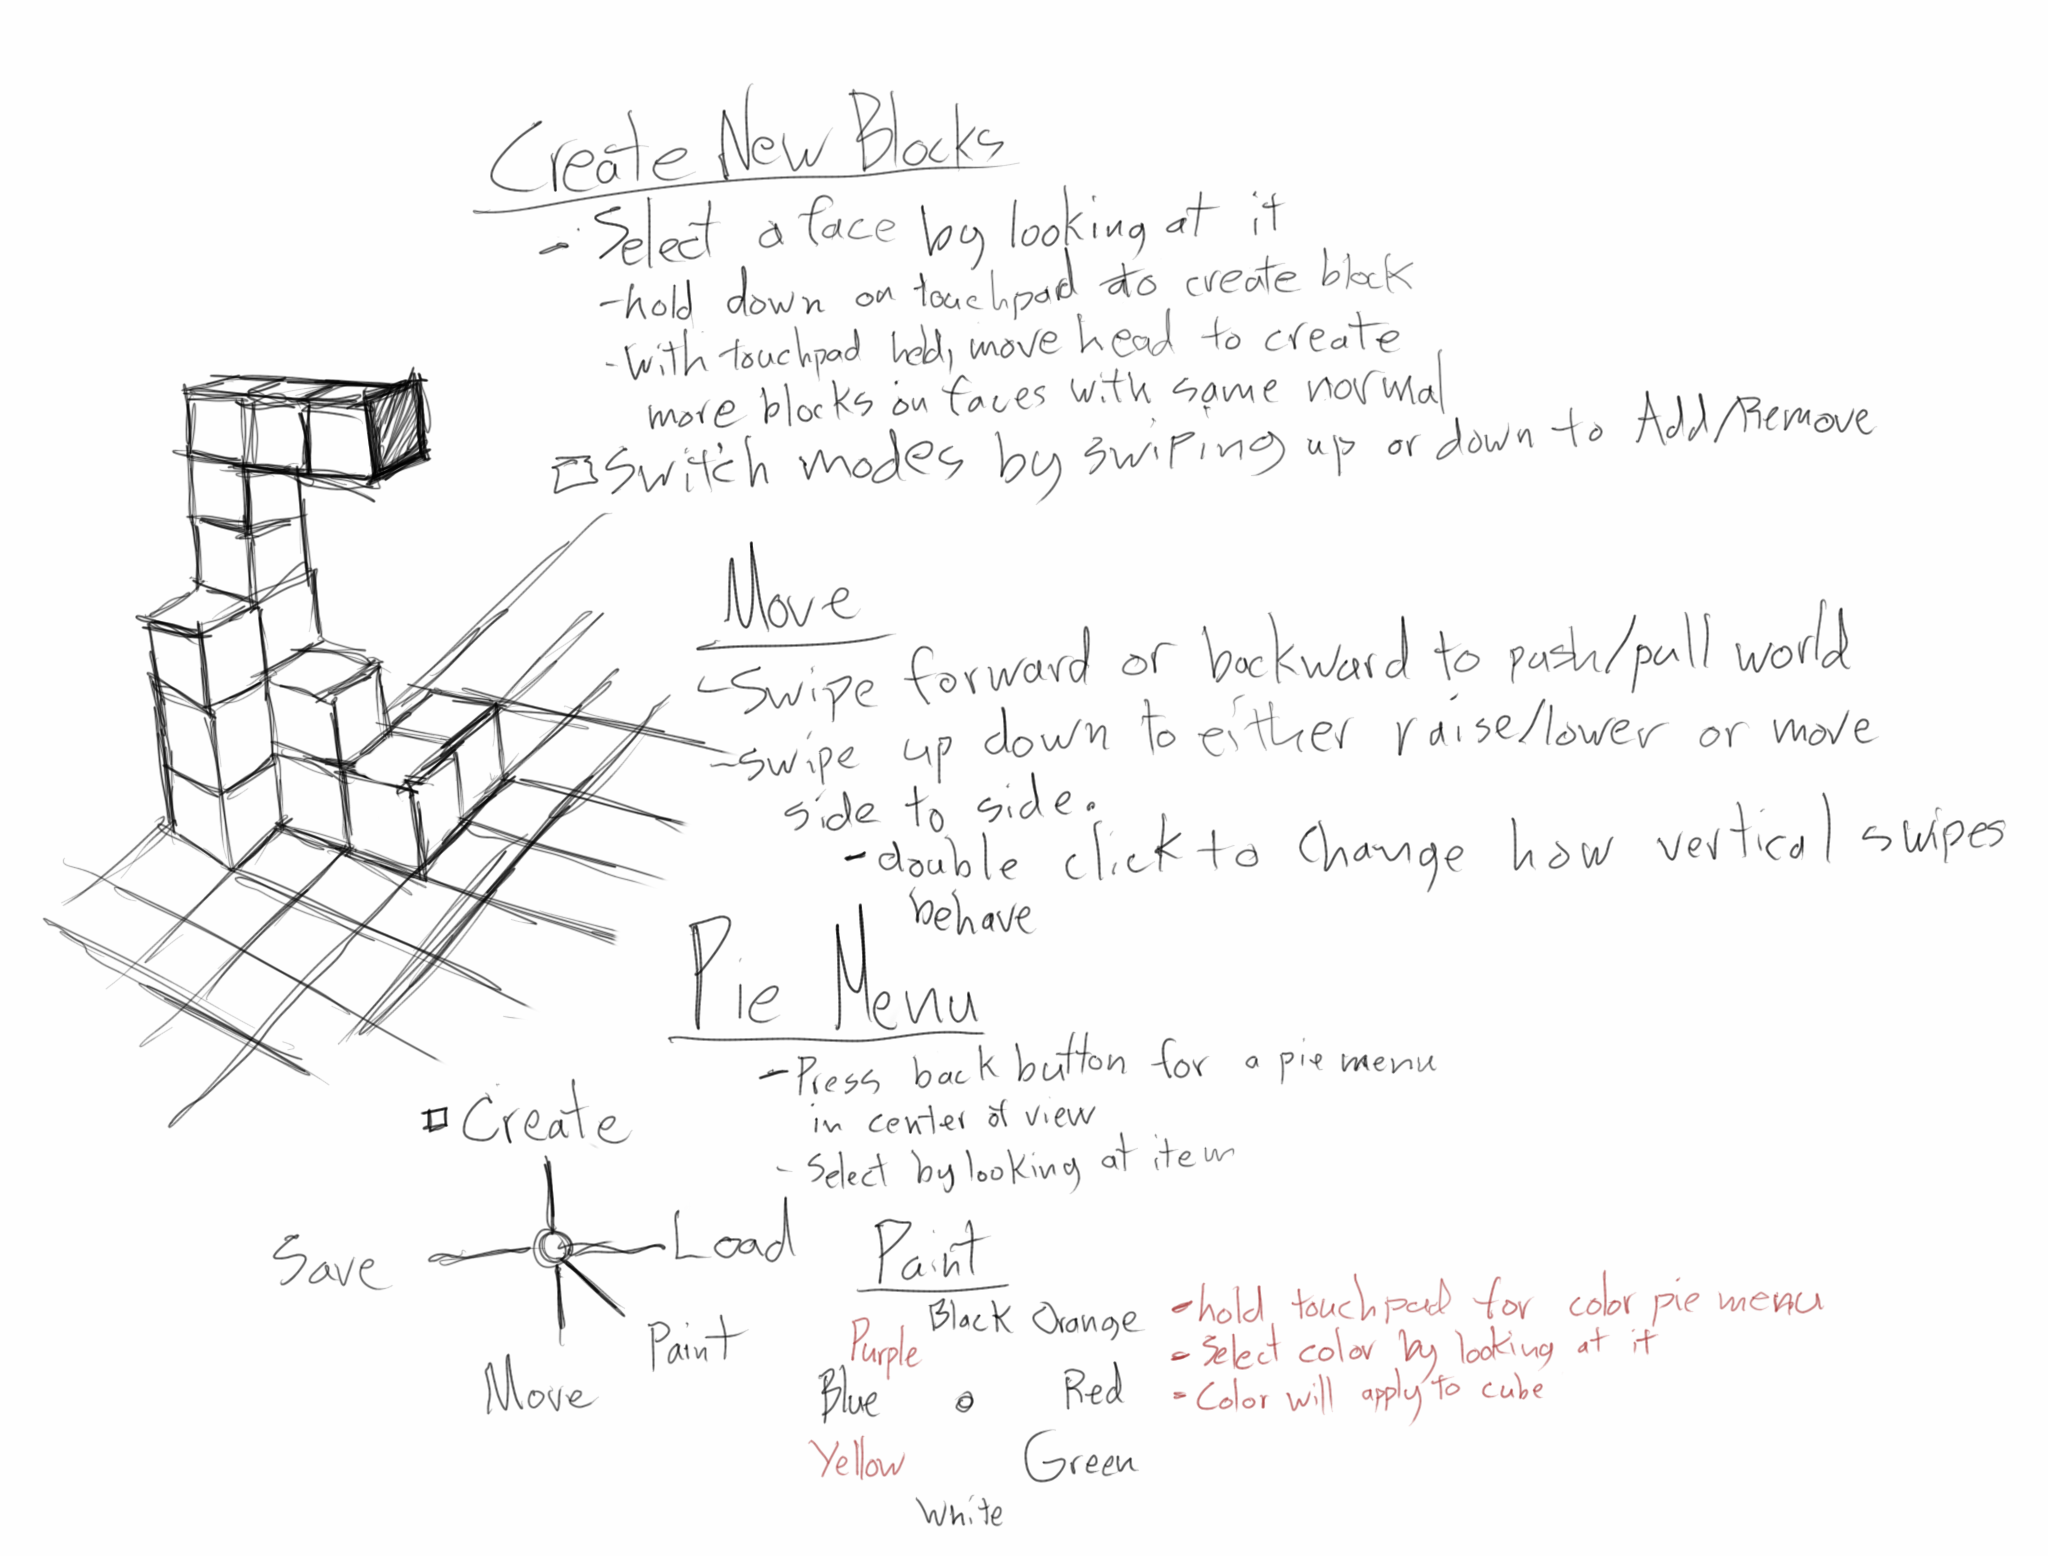 Create New Blocks
- Select a face by looking at it
- hold down on touchpad to create block
- With touchpad held, move head to create
more blocks on faces with same normal
Switch modes by swiping up or down to Add/Remove
Move
- Swipe forward or backward to push/pull world
- swipe up down to either raise/lower or move
side to side.
- double click to change how vertical swipes
behave
Pie Menu
- Press back button for a pie menu
in center of view
- Select by looking at item
Create
Save
Load
Paint
Move
Paint
Black Orange
Purple
Blue
Red
Yellow
Green
White
- hold touchpad for color pie menu
- Select color by looking at it
- Color will apply to cube